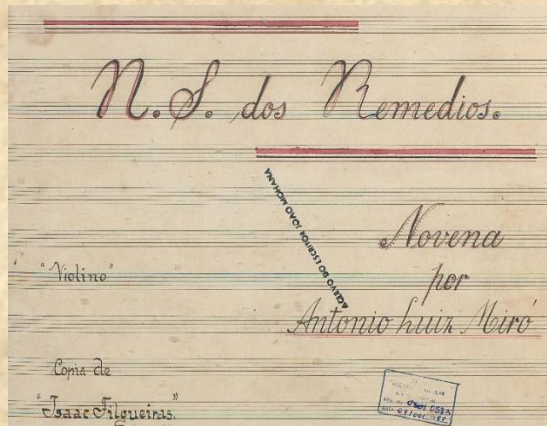 N. S. dos Remedios.
ACERVO DO ESCRITOR JOÃO MOHANA
Novena
"Violino"
por
Antonio Luiz Miró
Copia de
"Isaac Filgueiras."